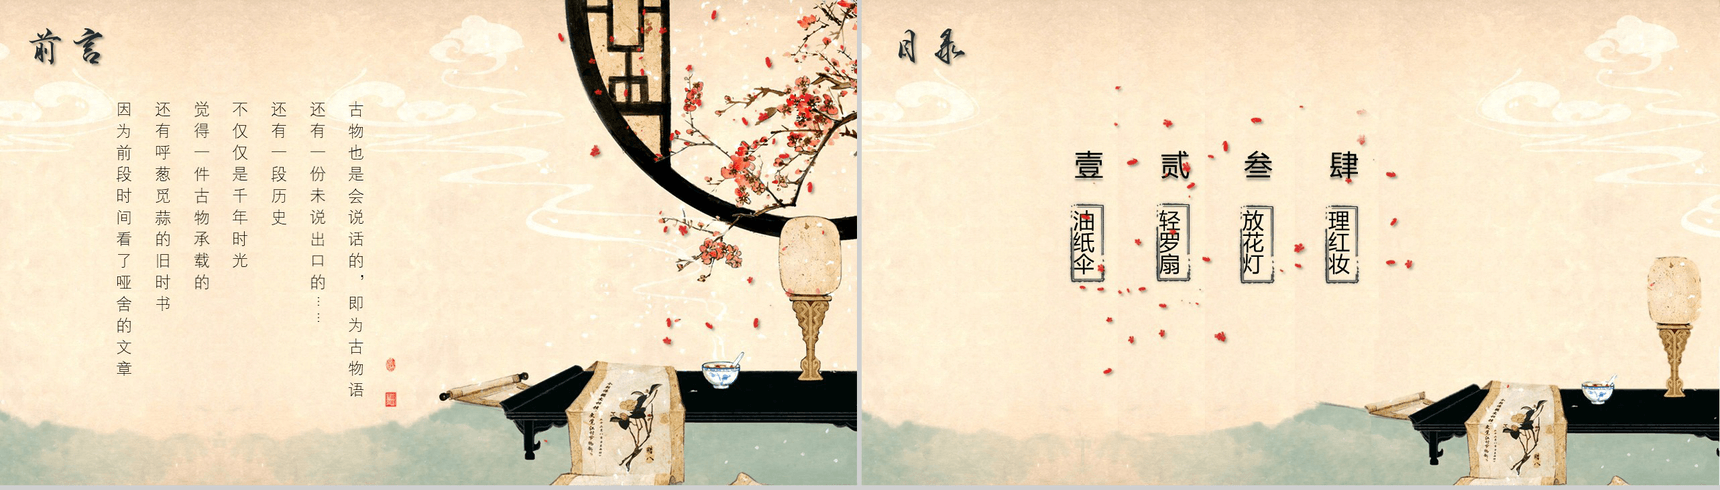 前言
古物也是会说话的，即为古物语
还有一份未说出口的……
还有一段历史
不仅仅是千年时光
觉得一件古物承载的
还有呼葱觅蒜的旧时书
因为前段时间看了哑舍的文章
目录
壹
油纸伞
贰
轻罗扇
叁
放花灯
肆
理红妆